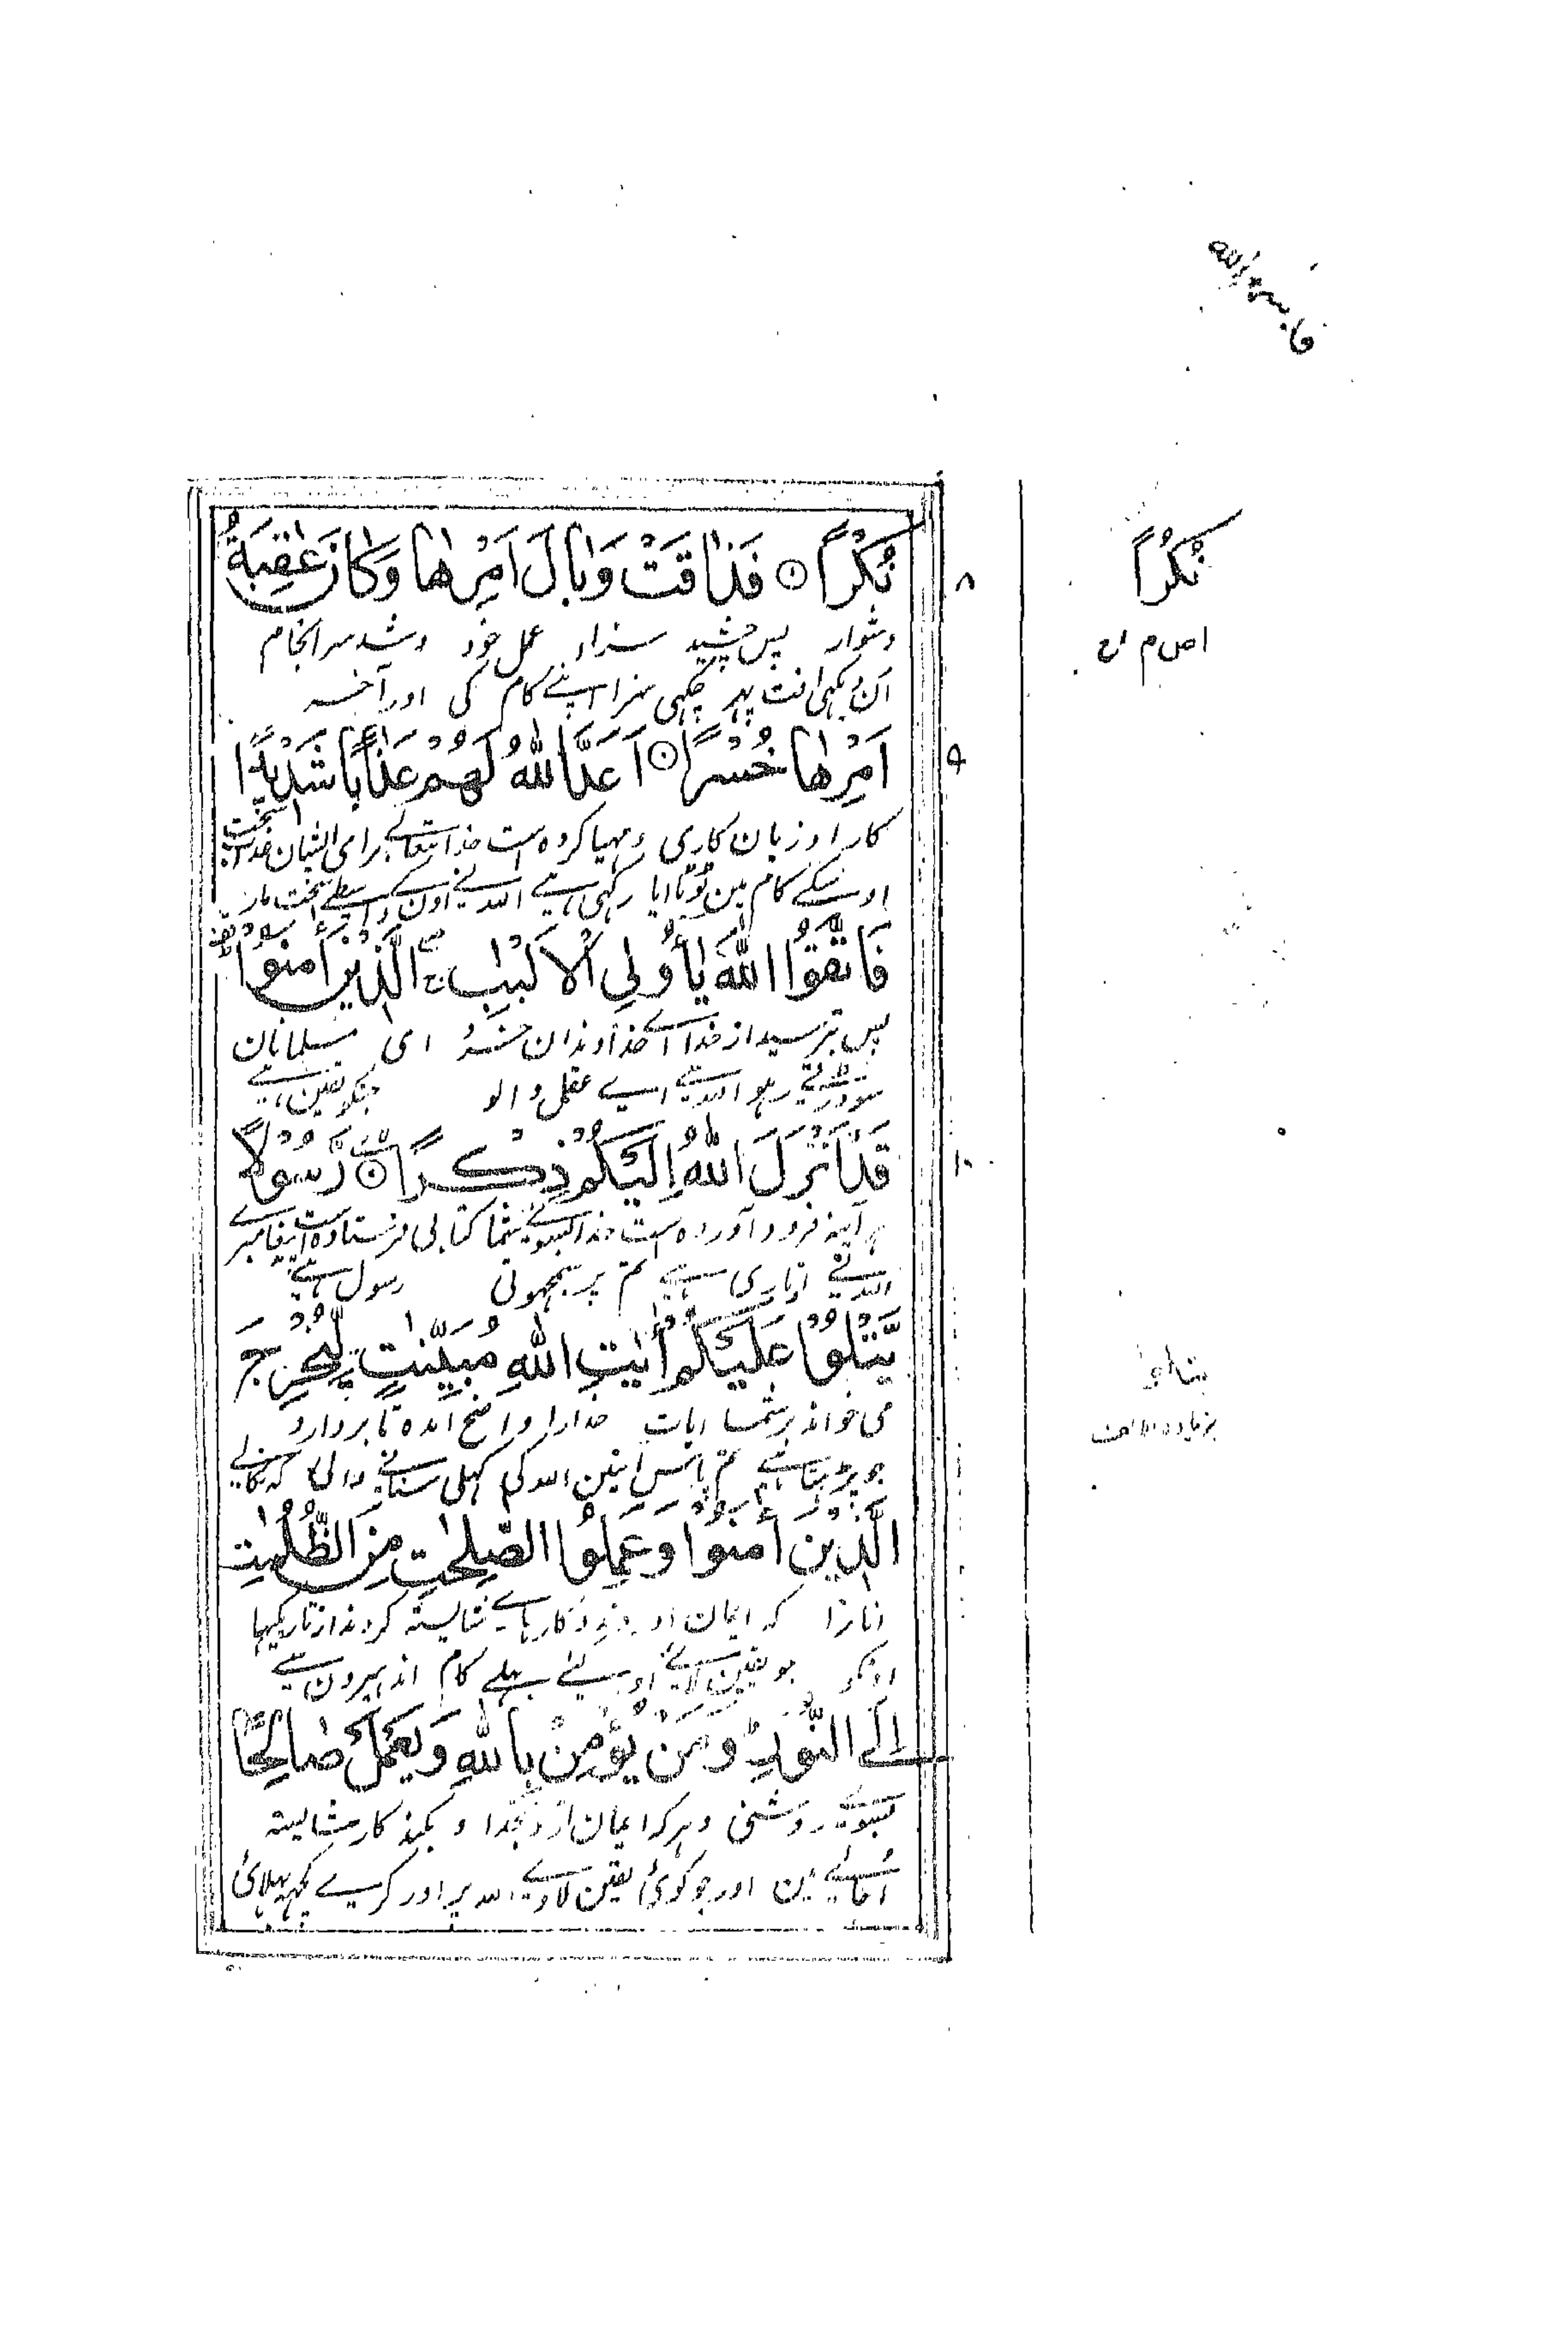 نُكْرًا ۝ فَذَاقَتْ وَبَالَ اَمْرِهَا وَكَانَ عٰقِبَةُ
دشوار پس چشید سزاء عمل خود و شد سرانجام
ان دیکہی آفت پہر چکہی سزا اپنے کام کی اور آخر
اَمْرِهَا خُسْرًا ۝ اَعَدَّ اللّٰهُ لَهُمْ عَذَابًا شَدِيْدًا
کار او زیان کاری و مہیا کردہ است خدایتعالے برای ایشان عذاب سخت
اوسکے کام مین ٹوٹا آیا رکہی ہے اللہ نے اون کے واسطے سخت مار
فَاتَّقُوا اللّٰهَ يٰٓاُولِي الْاَلْبَابِ الَّذِيْنَ اٰمَنُوْا
پس بترسید از خدا اے خداوندان خرد ای مسلمانان
سو ڈرتے رہو اللہ سے اے عقل والو جنکو یقین ہے
قَدْ اَنْزَلَ اللّٰهُ اِلَيْكُمْ ذِكْرًا ۝ رَّسُوْلًا
ہر آینہ فرود آوردہ است خدا بسوے شما کتابی فرستادہ است پیغامبرے
اللہ نے اتاری ہے تم پر سمجہوتی رسول ہے
يَّتْلُوْا عَلَيْكُمْ اٰيٰتِ اللّٰهِ مُبَيِّنٰتٍ لِّيُخْرِجَ
می خواند بر شما ایات خدا را واضح آمدہ تا بر دارد
جو پڑہتا ہے تم پاس آیتین اللہ کی کہلی سنانے والی کہ نکالے
الَّذِيْنَ اٰمَنُوْا وَعَمِلُوا الصّٰلِحٰتِ مِنَ الظُّلُمٰتِ
انانرا کہ ایمان اوردند و کارہاے شایستہ کردند از تاریکیہا
اونکو جو یقین لائے اور کیئے بہلے کام اندہیرون سے
اِلَى النُّوْرِ وَمَنْ يُّؤْمِنْ بِاللّٰهِ وَيَعْمَلْ صَالِحًا
بسوے روشنی و ہر کہ ایمان آرد بخدا و بکند کار شایستہ
اُجالے مین اور جو کوئی یقین لاوے اللہ پر اور کرے کچہہ بہلائی
۸
۹
۱۰
نُكْرًا